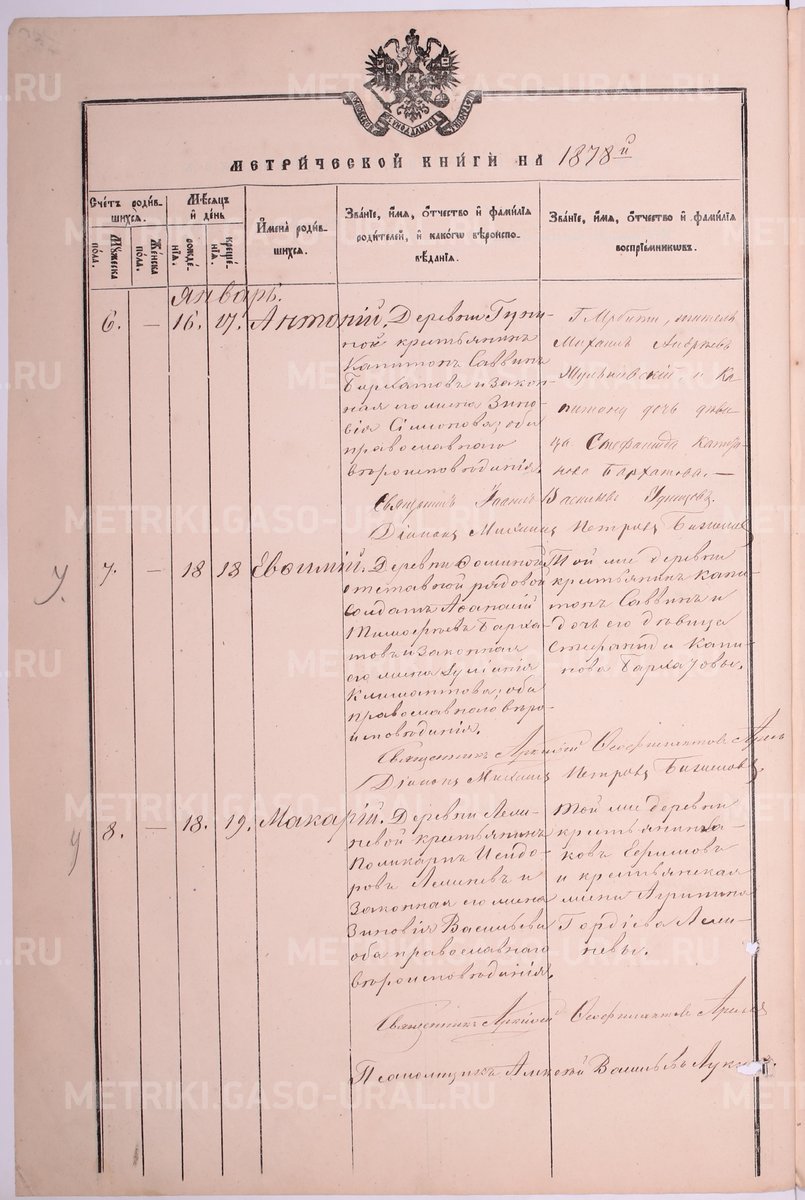 МЕТРИ́ЧЕСКОЙ КНИ́ГИ НА 1878й
Счетъ роди́вшихся.
Мѣсяцъ и день
Имена роди́вшихся.
Зва́ніе, и́мя, о́тчество и фами́лія родителей, и какогѡ вѣроисповѣданія.
Зва́ніе, и́мя, о́тчество и фами́лія воспріе́мникѡвъ.
Мужеска пола.
Женска пола.
рожденія.
крещенія.
Январь.
6. — 16. 17. Антоній.
Деревни
ной крестьянинъ
Капитонъ Саввинъ
Бархатовъ и закон-
ная его жена Зино-
вія Сімеонова; оба
православнаго
вѣроисповѣданія.
Михаилъ
и Ка-
питона дочь дѣви-
ца Стефанида Капито-
нова Бархатова. —
Священникъ Іоаннъ Васильевъ
Діаконъ Михаилъ Петровъ
У.
7. — 18 18 Евѳимій.
Деревни Ѳоминой
отставной рядовой
солдатъ Аѳанасій
Тимоѳеевъ Барха-
товъ и законная
его жена Іуліанія
Климантова; оба
православнаго вѣро-
исповѣданія.
Той же деревни
крестьянинъ Капи-
тонъ Саввинъ и
дочь его дѣвица
Стефанида Капи-
нова Бархатовы.
Священникъ Аркадій Ѳеофилактовъ
Діаконъ Михаилъ Петровъ
У
8. — 18. 19. Макарій.
Деревни Ляпи-
невой крестьянинъ
Поликарпъ Исидо-
ровъ Ляпиневъ и
законная его жена
Зиновія Васильева
оба православнаго
вѣроисповѣданія.
Той же деревни
крестьянинъ Іа-
ковъ Ефимовъ
и крестьянская
жена Агрипина
Гордіева Ляпи-
невы.
Священникъ Аркадій Ѳеофилактовъ
Псаломщикъ Алексѣй Васильевъ
METRIKI.GASO-URAL.RU